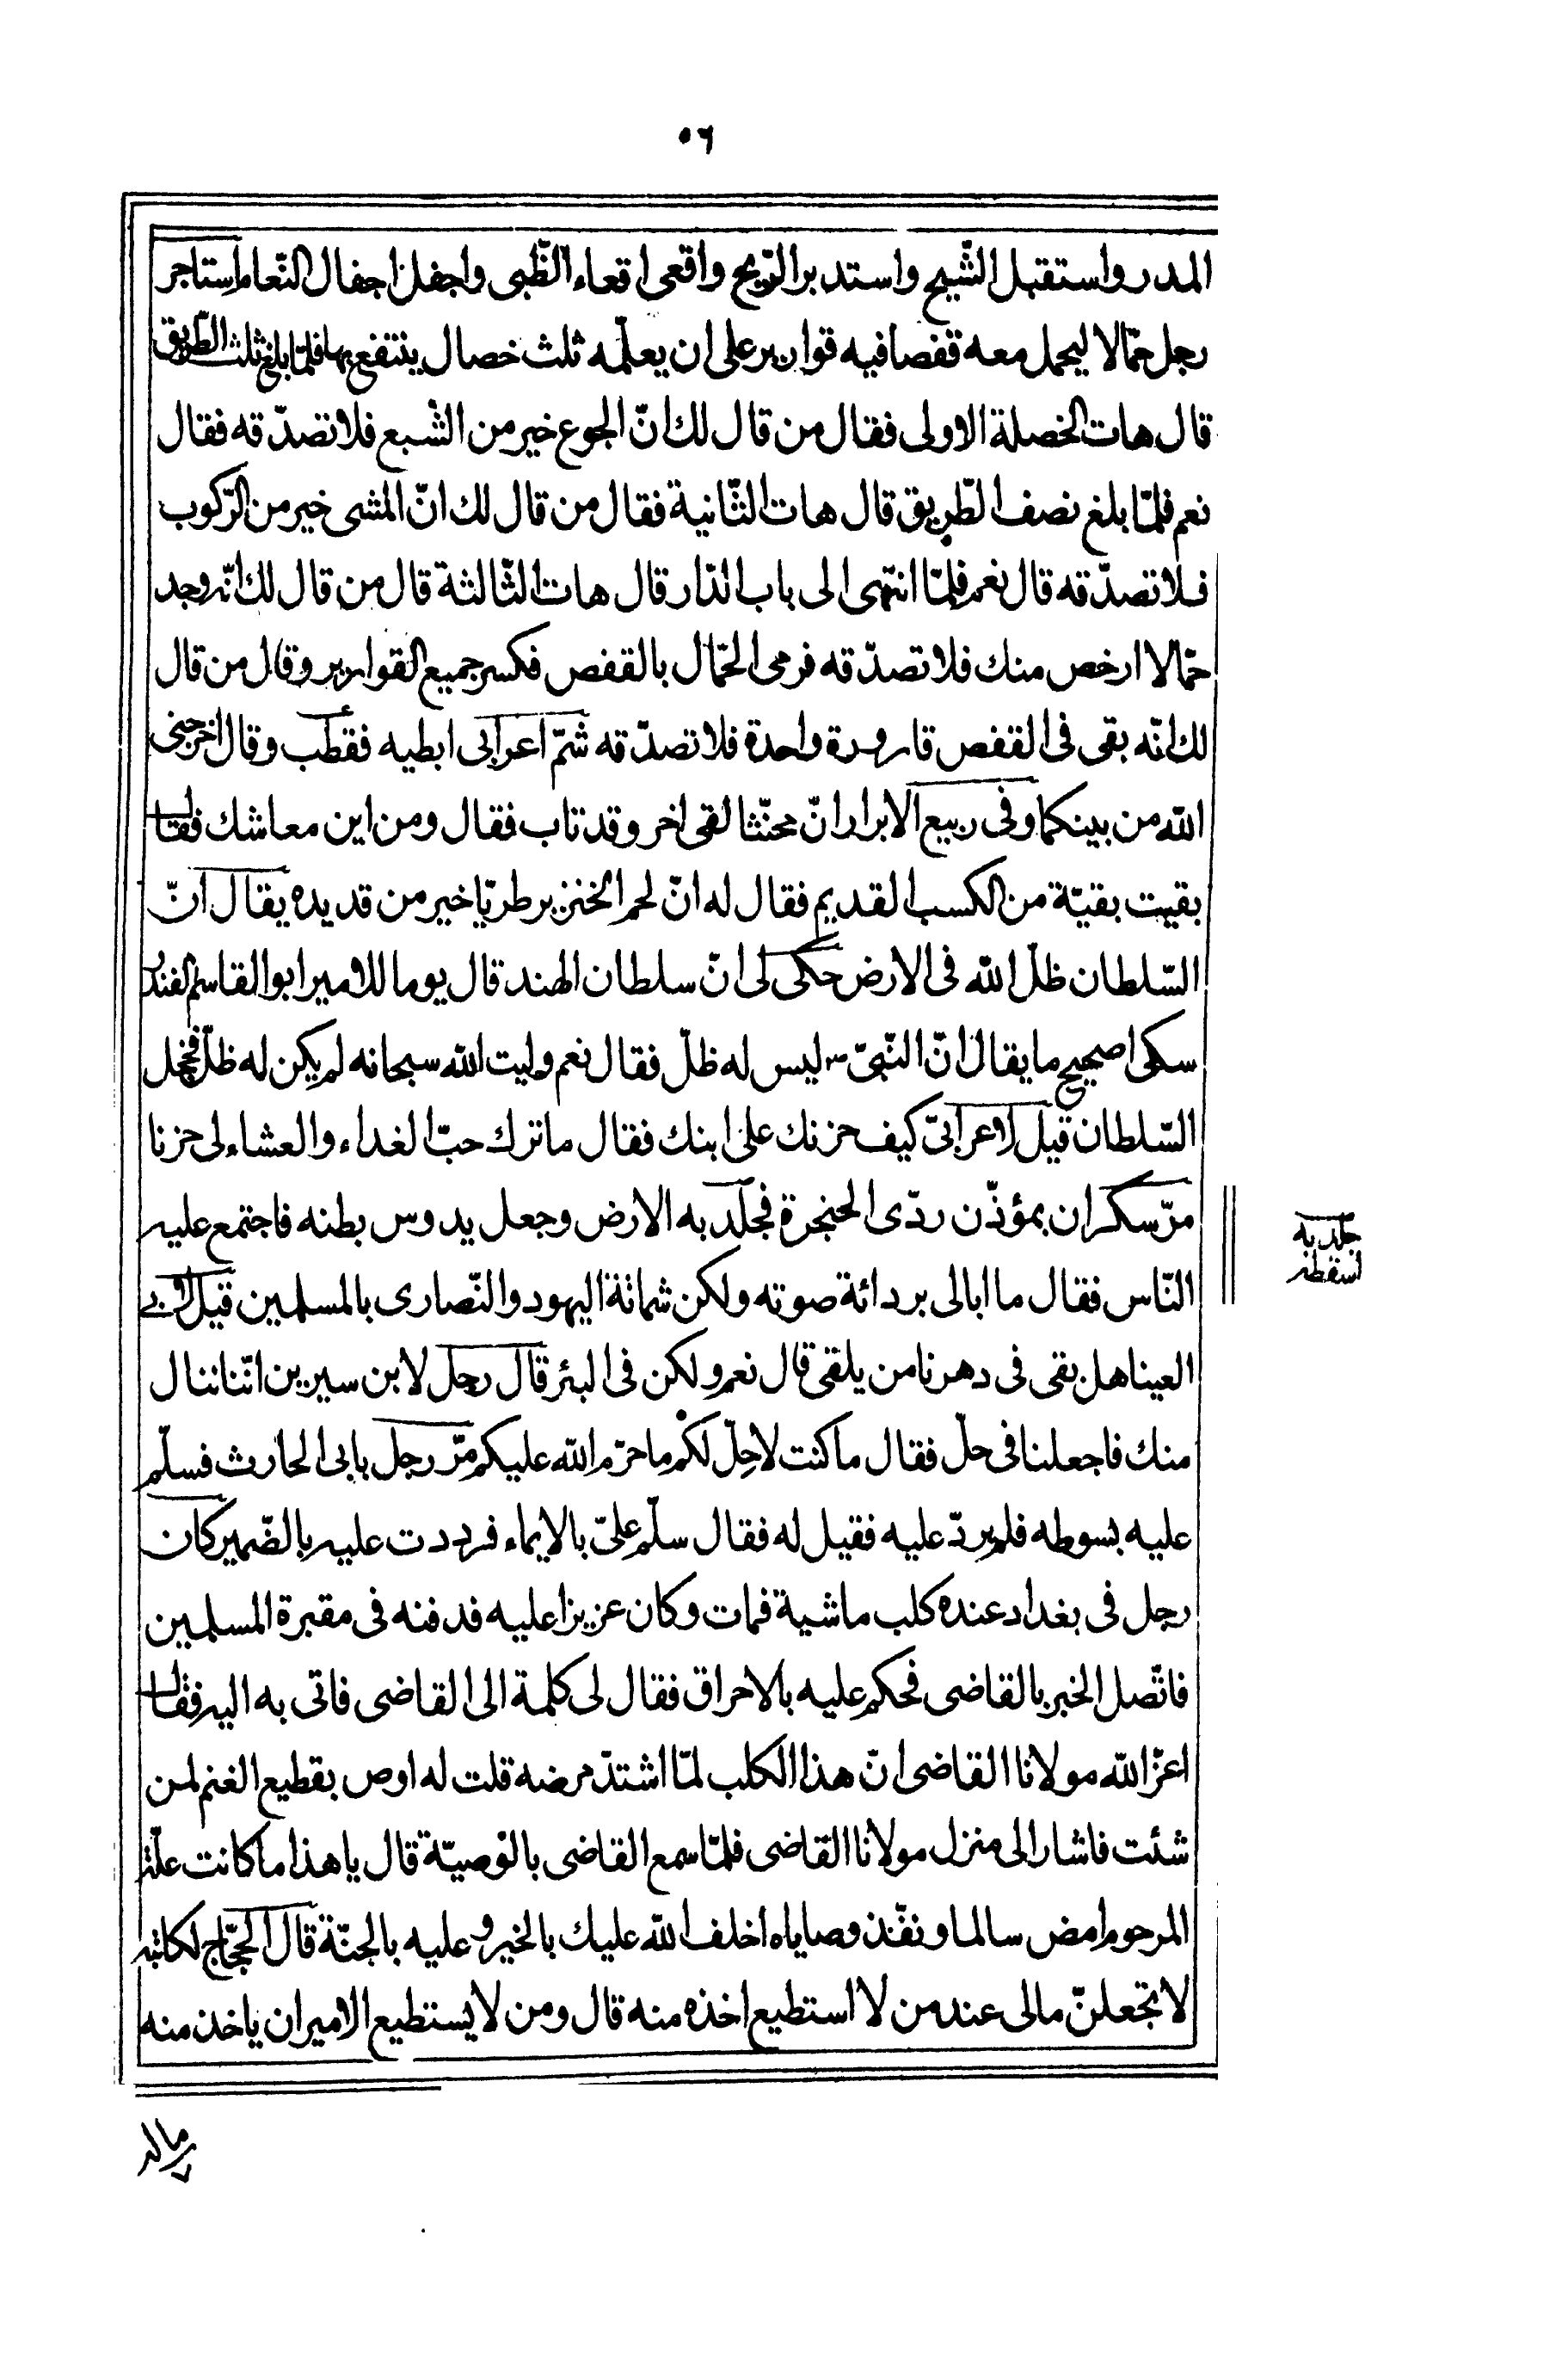 ٥٦
المدر واستقبل الشّيح واستدبر الرّيح واقعى اقعاء الظّبى واجفل اجفال النّعام استاجر
رجل حمّالا ليحمل معه قفصا فيه قوارير على ان يعلّمه ثلث خصال ينتفع بها فلمّا بلغ ثلث الطّريق
قال هات الخصلة الاولى فقال من قال لك انّ الجوع خير من الشّبع فلا تصدّقه فقال
نعم فلمّا بلغ نصف الطّريق قال هات الثّانية فقال من قال لك انّ المشى خير من الرّكوب
فلا تصدّقه قال نعم فلمّا انتهى الى باب الدّار قال هات الثّالثة قال من قال لك انّه وجد
حمّالا ارخص منك فلا تصدّقه فرمى الحمّال بالقفص فكسر جميع القوارير وقال من قال
لك انّه بقى فى القفص قارورة واحدة فلا تصدّقه شمّ اعرابى ابطيه فقطب وقال اخرجنى
الله من بينكما وفى ربيع الابرار انّ مخنّثا لقى اخر وقد تاب فقال ومن اين معاشك فقال
بقيت بقيّة من الكسب القديم فقال له انّ لحم الخنزير طريّا خير من قديده يقال انّ
السّلطان ظلّ الله فى الارض حكى لى انّ سلطان الهند قال يوما للامير ابو القاسم الفندر
سكى اصحيح ما يقال انّ النّبىّ ص ليس له ظلّ فقال نعم وليت الله سبحانه لم يكن له ظلّ فخجل
السّلطان قيل لاعرابىّ كيف حزنك على ابنك فقال ما ترك حبّ الغداء والعشاء لى حزنا
مرّ سكران بمؤذّن ردّى الحنجرة فجلّد به الارض وجعل يدوس بطنه فاجتمع عليه
جلّد به
اسقطه
النّاس فقال ما ابالى بردائة صوته ولكن شماتة اليهود والنّصارى بالمسلمين قيل لابى
العينا هل بقى فى دهرنا من يلقى قال نعم ولكن فى البئر قال رجل لابن سيرين انّنا ننال
منك فاجعلنا فى حلّ فقال ما كنت لاحلّ لكم ما حرّم الله عليكم مرّ رجل بابى الحارث فسلّم
عليه بسوطه فلم يردّ عليه فقيل له فقال سلّم علىّ بالايماء فرددت عليه بالضّمير كان
رجل فى بغداد عنده كلب ماشية فمات وكان عزيزا عليه فدفنه فى مقبرة المسلمين
فاتّصل الخبر بالقاضى فحكم عليه بالاحراق فقال لى كلمة الى القاضى فاتى به اليه فقال
اعزّ الله مولانا القاضى انّ هذا الكلب لمّا اشتدّ مرضه قلت له اوص بقطيع الغنم لمن
شئت فاشار الى منزل مولانا القاضى فلمّا سمع القاضى بالوصيّة قال يا هذا ما كانت علّة
المرحوم امض سالما ونفّذ وصاياه اخلف الله عليك بالخير وعليه بالجنّة قال الحجّاج لكاتبه
لا تجعلنّ مالى عند من لا استطيع اخذه منه قال ومن لا يستطيع الامير ان ياخذ منه
ماله